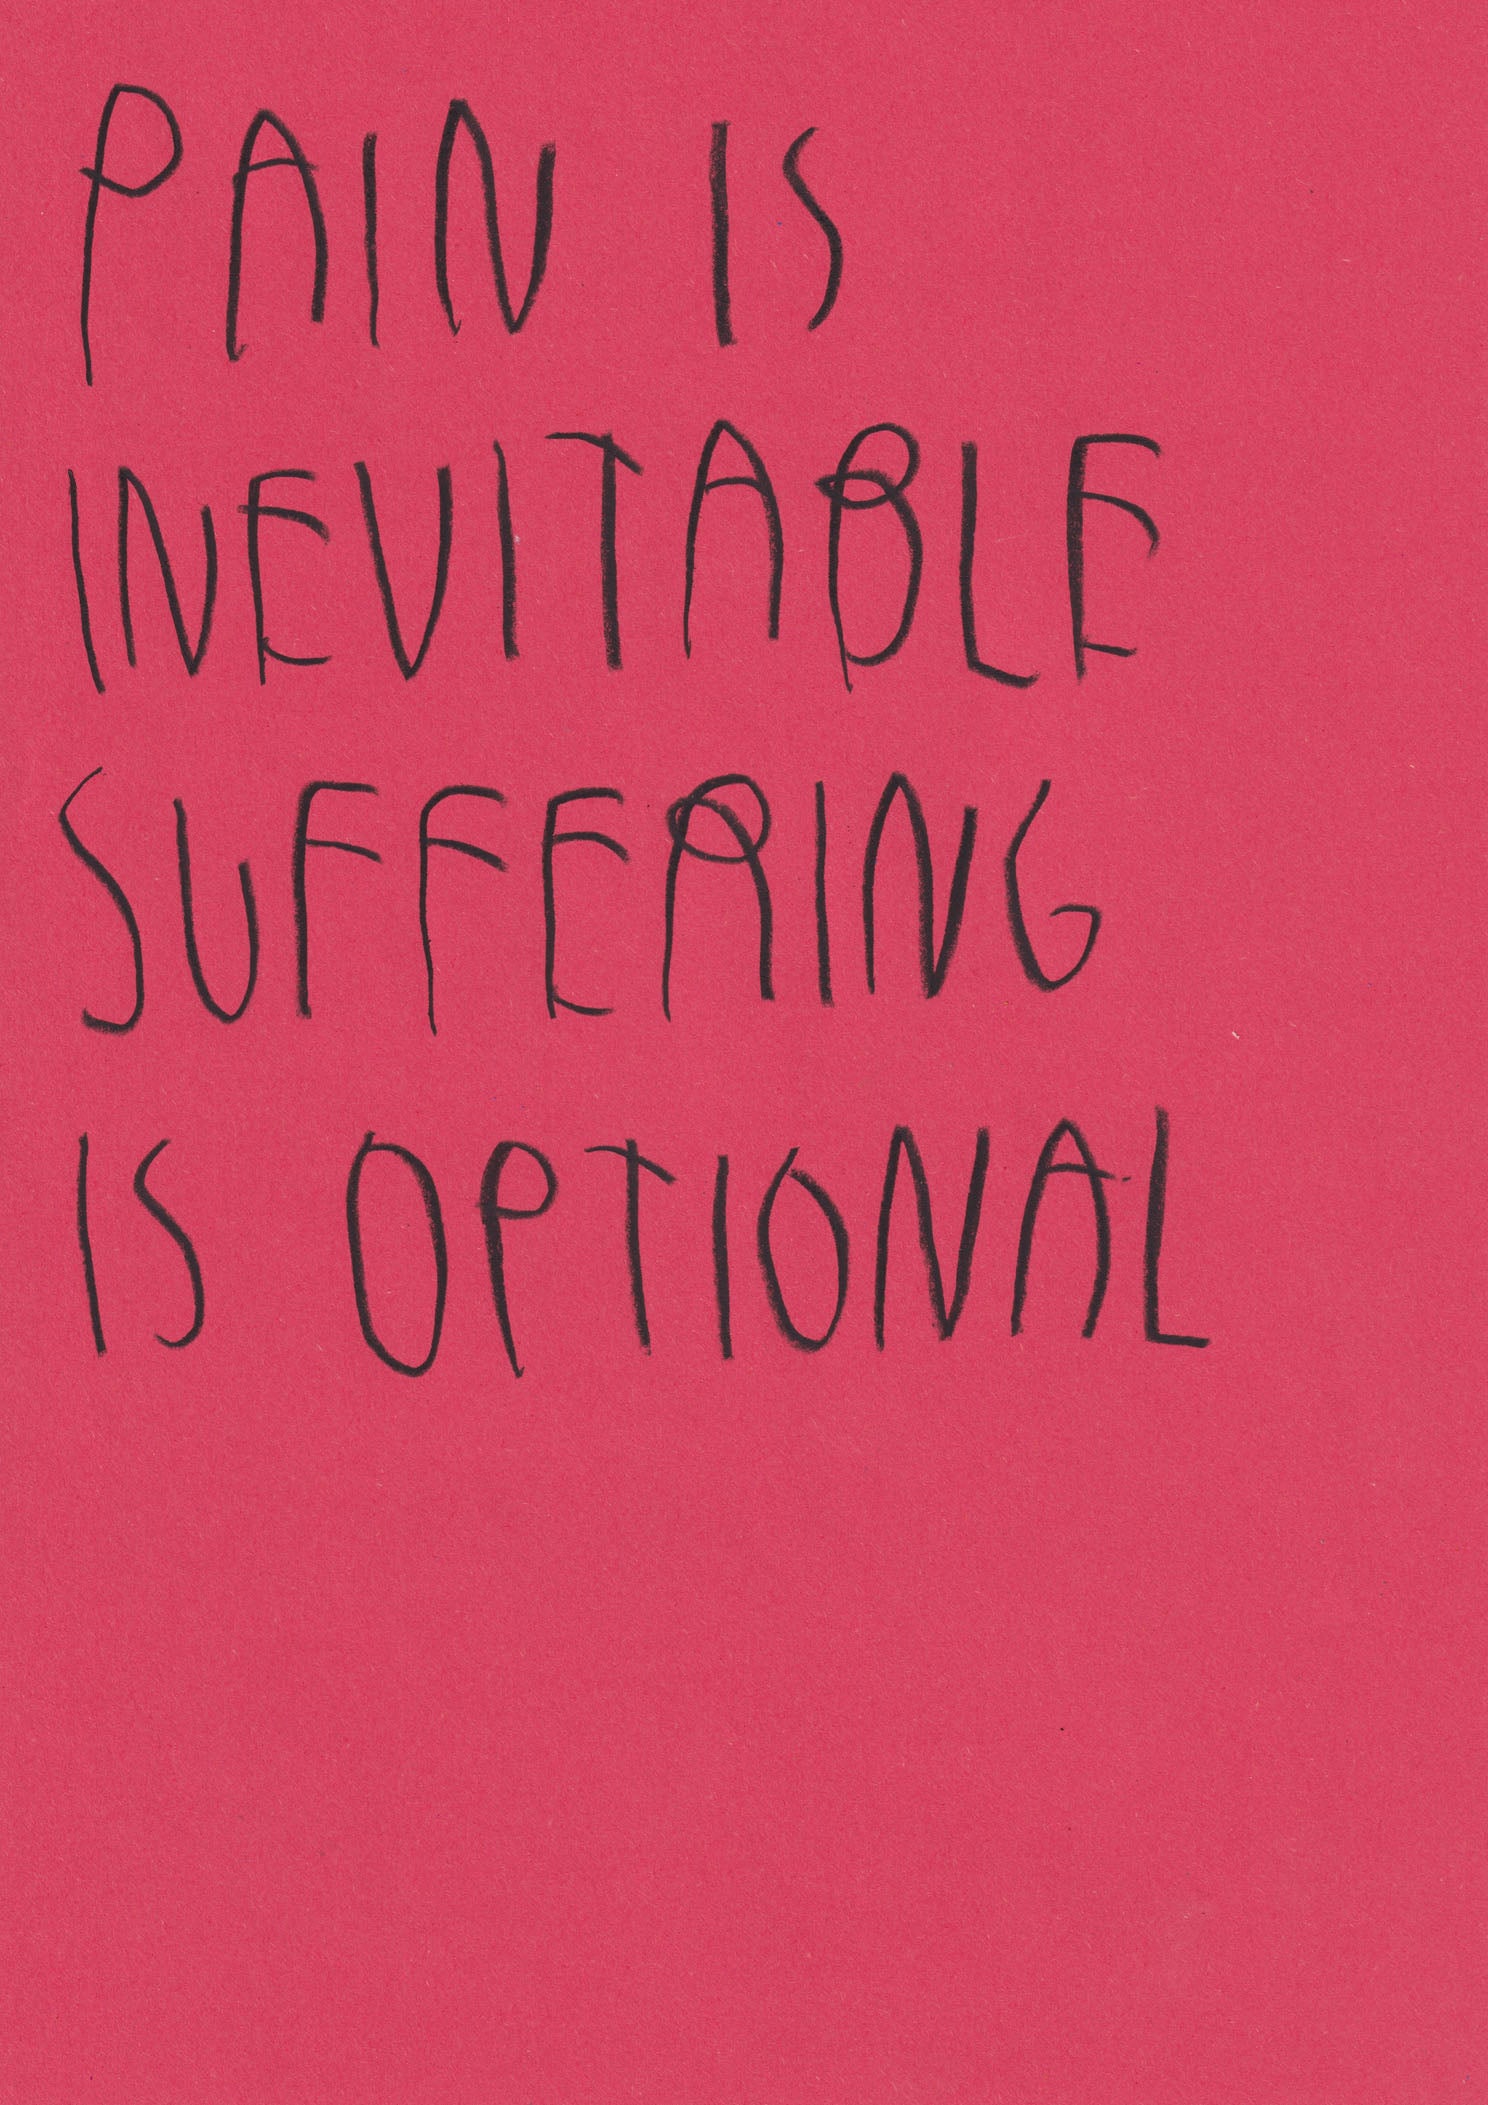 PAIN IS
INEVITABLE
SUFFERING
IS OPTIONAL